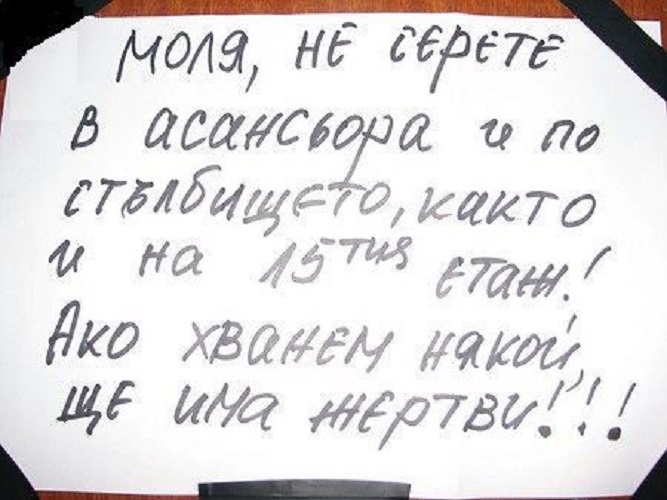 МОЛЯ, НЕ СЕРЕТЕ
В АСАНСЬОРА И ПО
СТЪЛБИЩЕТО, КАКТО
И НА 15ТИЯ ЕТАЖ!
АКО ХВАНЕМ НЯКОЙ,
ЩЕ ИМА ЖЕРТВИ!!!